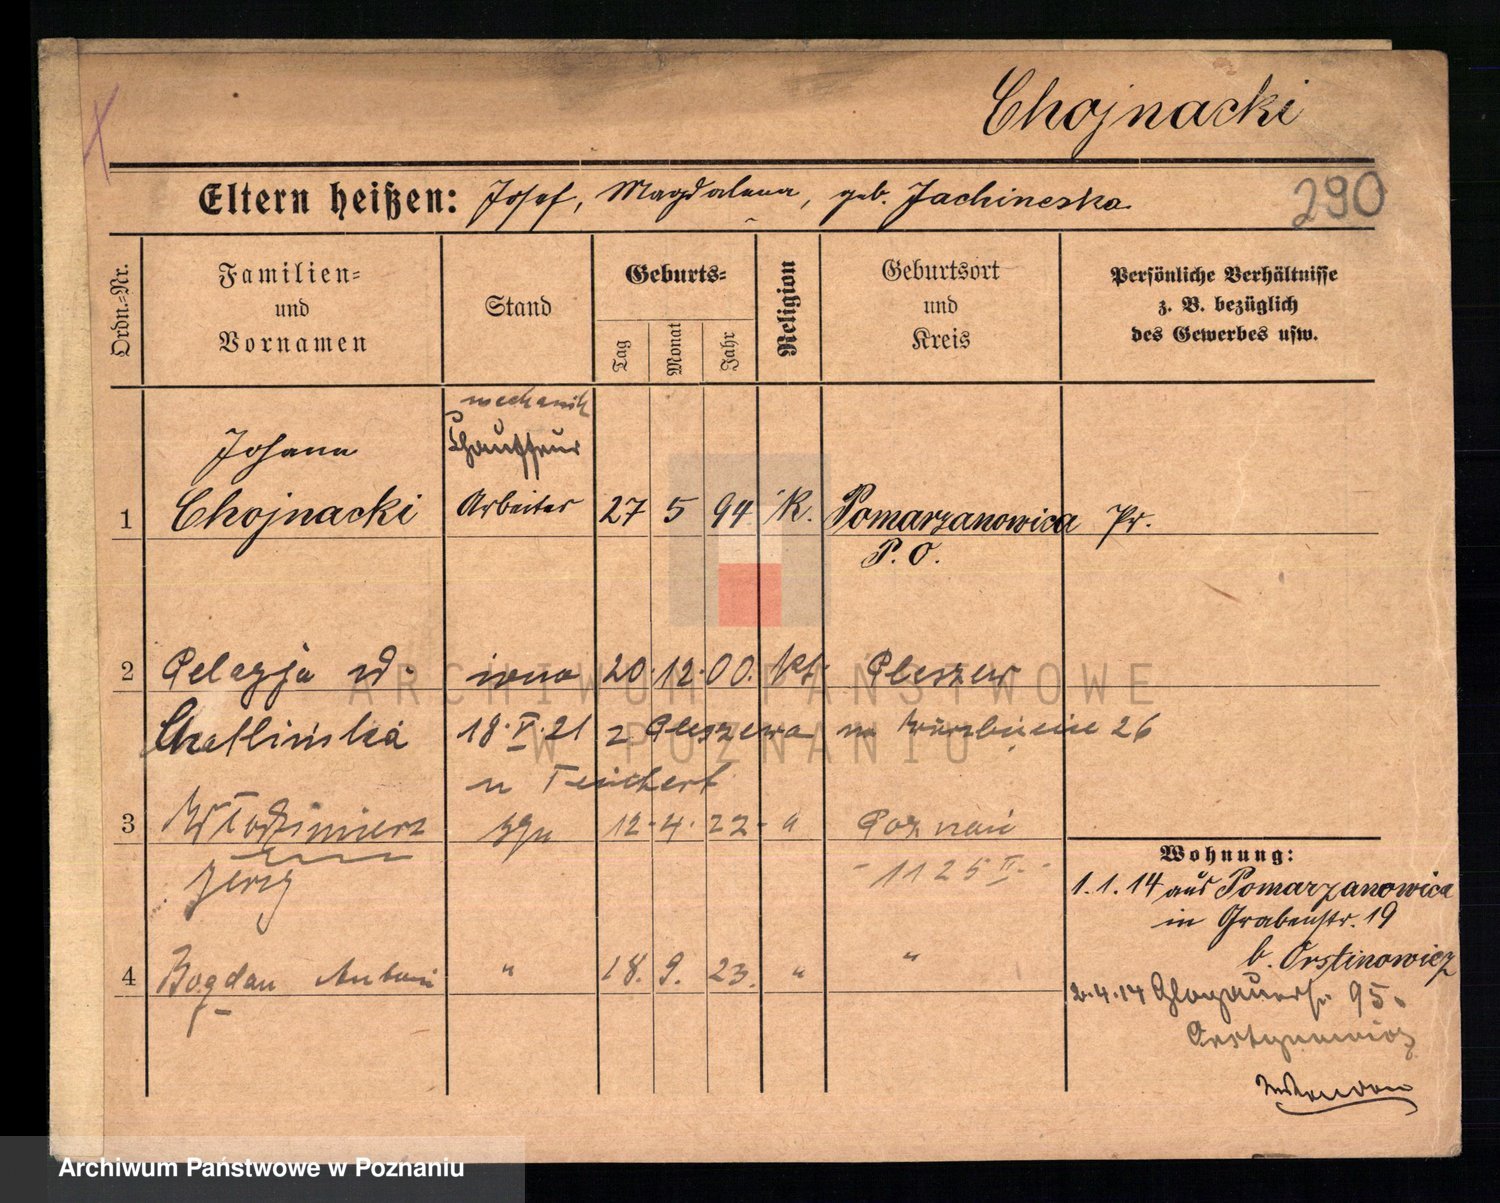 Chojnacki
Eltern heißen: Josef, Magdalena, geb. Jachineska
290
Ordn.-Nr.
Familien-
und
Vornamen
Stand
Geburts-
Tag
Monat
Jahr
Religion
Geburtsort
und
Kreis
Persönliche Verhältnisse
z. B. bezüglich
des Gewerbes usw.
mechanik
Johann Chauffeur
1 Chojnacki Arbeiter 27 5 94 K. Pomarzanowica Pr.
P. O.
2 Pelagja 20. 12. 00. kt. Pleszew
18. V. 21 z Pleszewa 26
u Teichert
3 Włodzimierz 12. 4. 22. " Poznań
Jerzy 1125 II.
4 Bogdan Antoni " 18. 9. 23. " "
Wohnung:
1. 1. 14 aus Pomarzanowica
in Grabenstr. 19
b. Orstinowicz
2. 4. 14 Glogauerstr. 95.
Wenden
ARCHIWUM PAŃSTWOWE
W POZNANIU
Archiwum Państwowe w Poznaniu